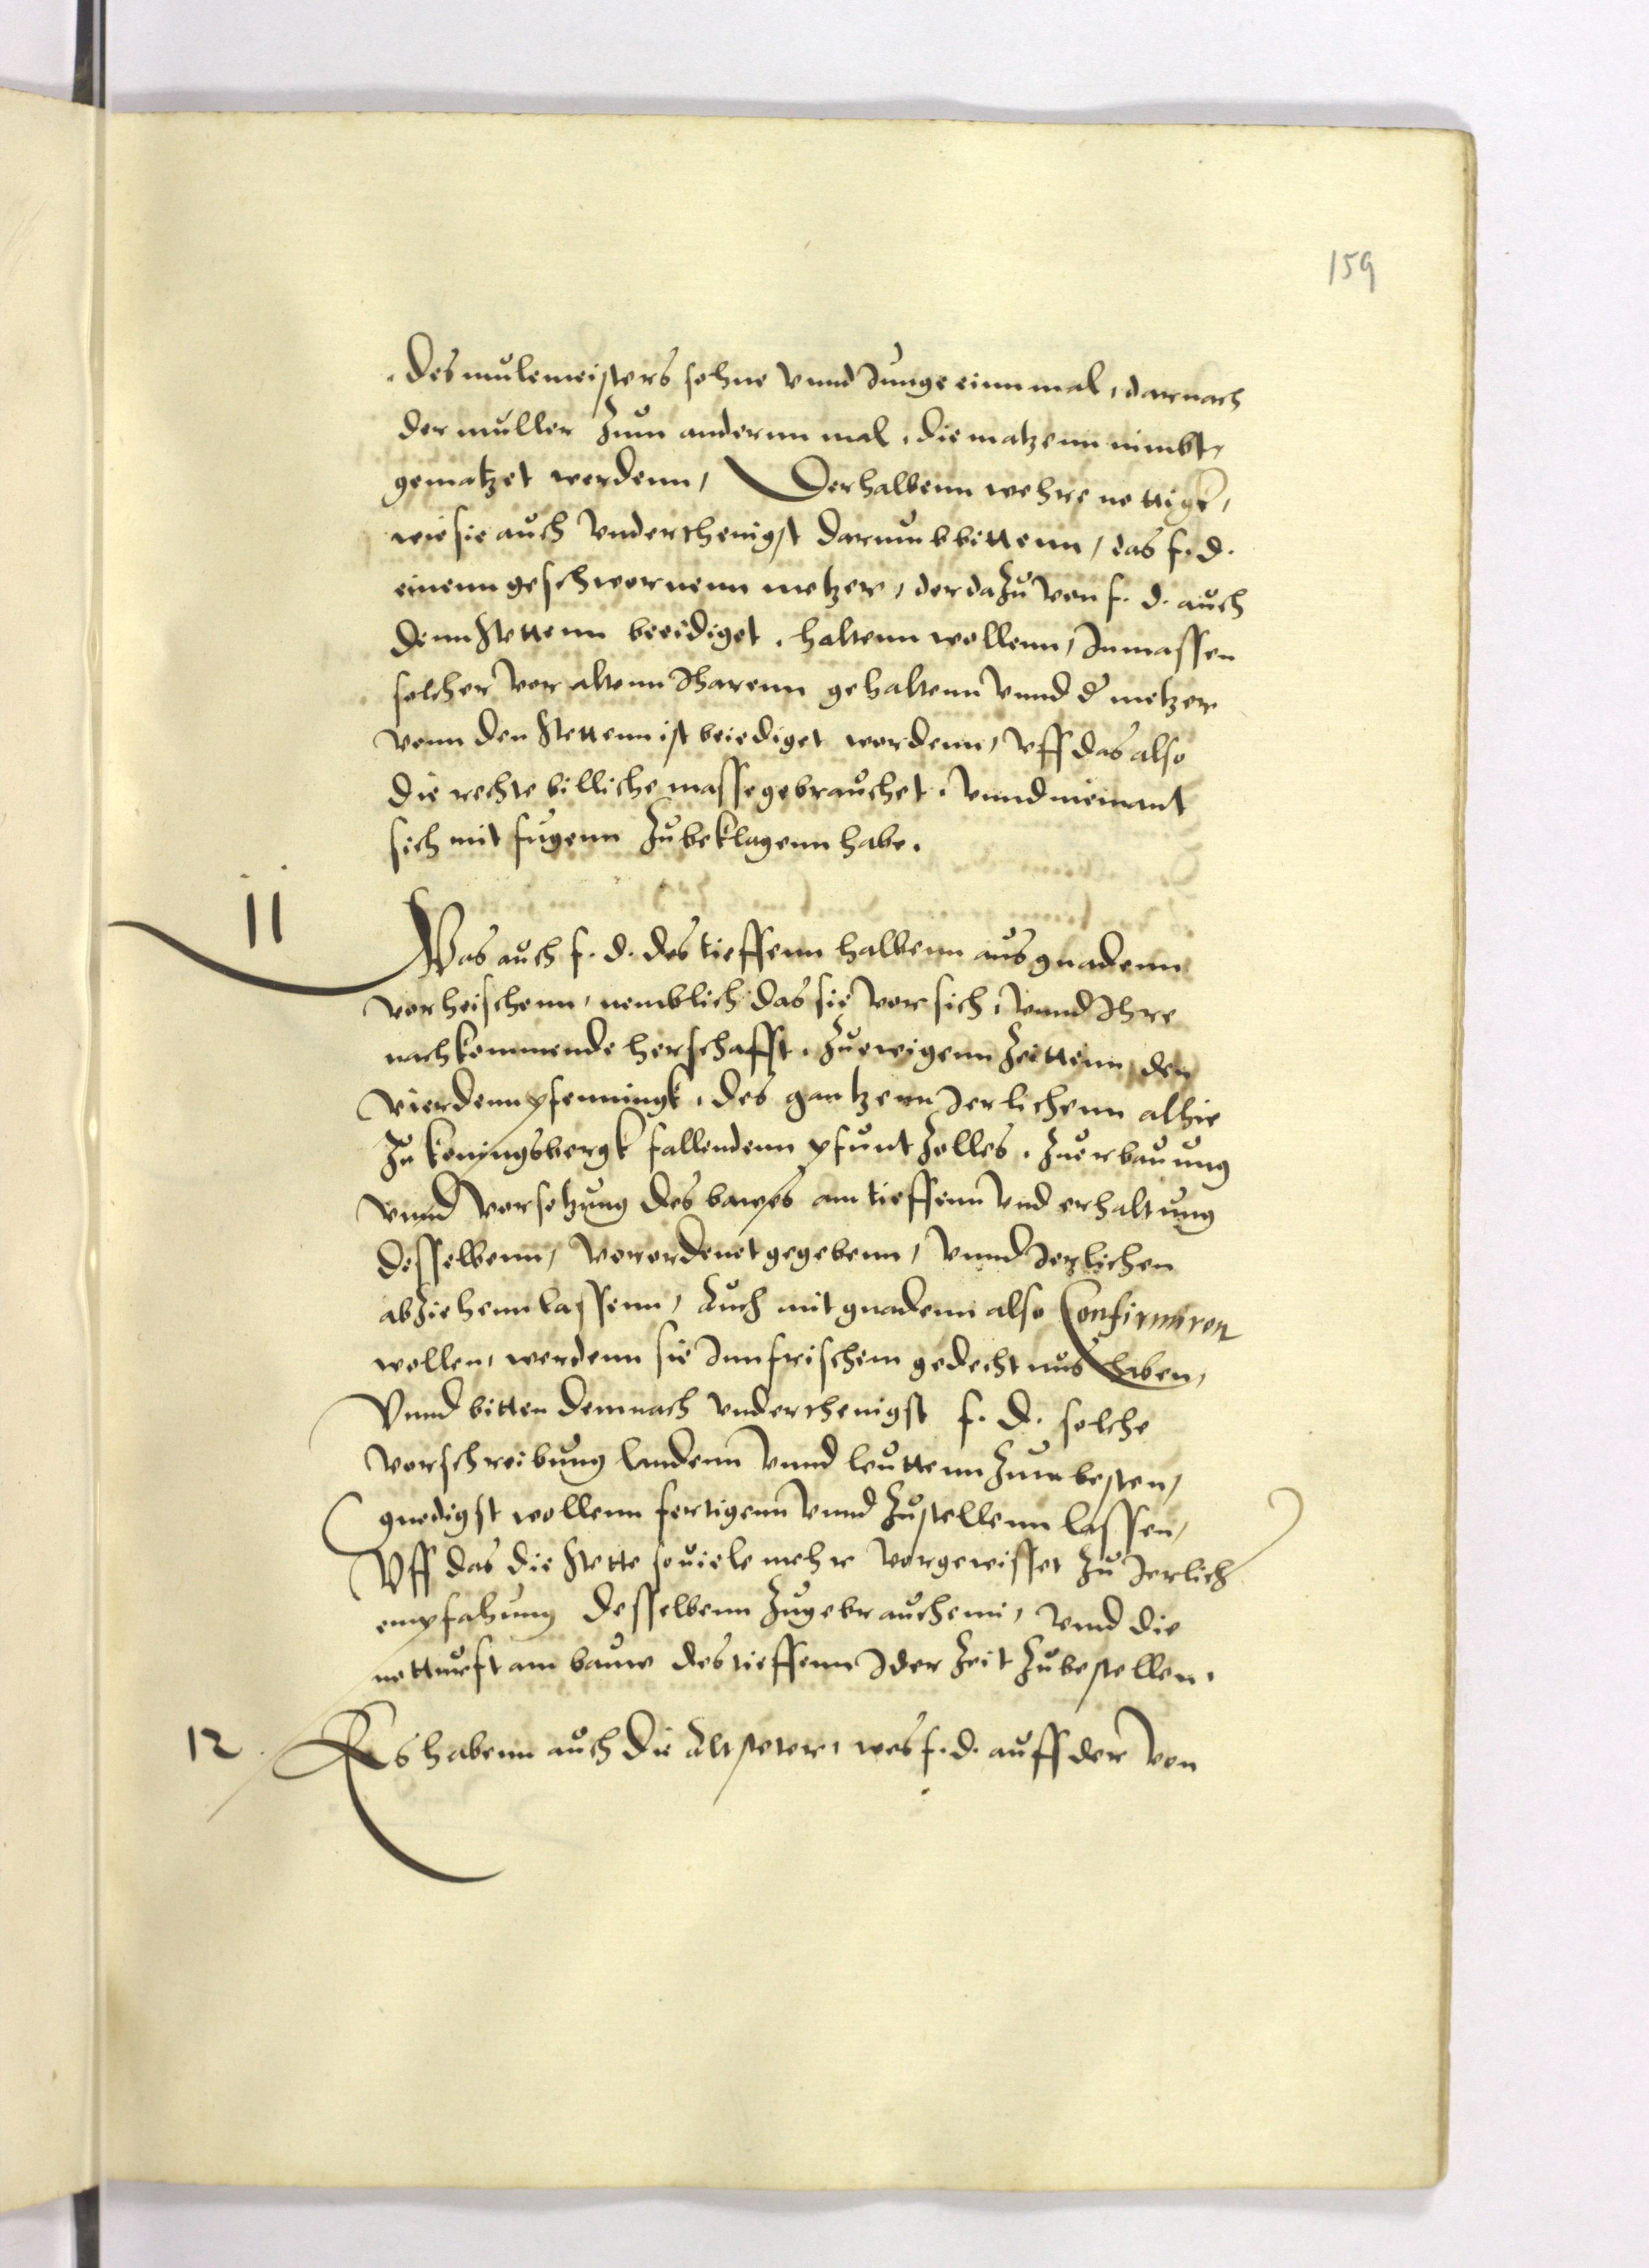 159
des mulemeisters sohne vnnd Junge einn mal, darnach
der muller zum andernn mal, die matzenn nimbt,
gematzet werdenn, Derhalbenn wehre nottigk,
wie sie auch vnderthenigst darumb bittenn, das f. d.
einenn geschwornenn metzer, der dazu von f. d. auch
denn Stettenn beeidiget, haltenn wollenn, Inmassen
solcher vor altenn Jharenn gehaltenn vnnd d metzer
vonn den Stettenn ist beiediget wordenn, vff das also
die rechte billiche masse gebrauchet, vnnd niemant
sich mit fugenn zubeklagenn habe.
11
Was auch f. d. des tieffenn halbenn aus gnadenn
vorheischenn, nemblich das sie vor sich, vnnd Ihre
nachkommende herschafft, zu ewigenn Zeittenn, den
vierdenn pfenningk, des gantzenn Jerlichenn alhie
zu konyngsbergk fallendenn pfunt Zolles, zu erbauung
vnnd vorsetzung des bawes am tieffenn vnd erhaltung
desselbenn, verordenet gegebenn, vnnd Jerlichen
abziehenn lassenn, Auch mit gnadenn also Confirmiren
wollen, werdenn sie Inn frischem gedechtnus haben,
Vnnd bitten demnach vnderthenigst f. d. solche
vorschreibung landenn vnnd leuttenn zum besten,
gnedigst wollenn fertigenn vnnd zustellenn lassen,
Vff das die Stette souiele mehr vorgewisset zu Jerlich
empfahung desselbenn zugebrauchenn, vnnd die
notturft am bauw des tieffenn Jder Zeit zubestellen.
12
Es habenn auch die Altsteter, wes f. d. auff der von